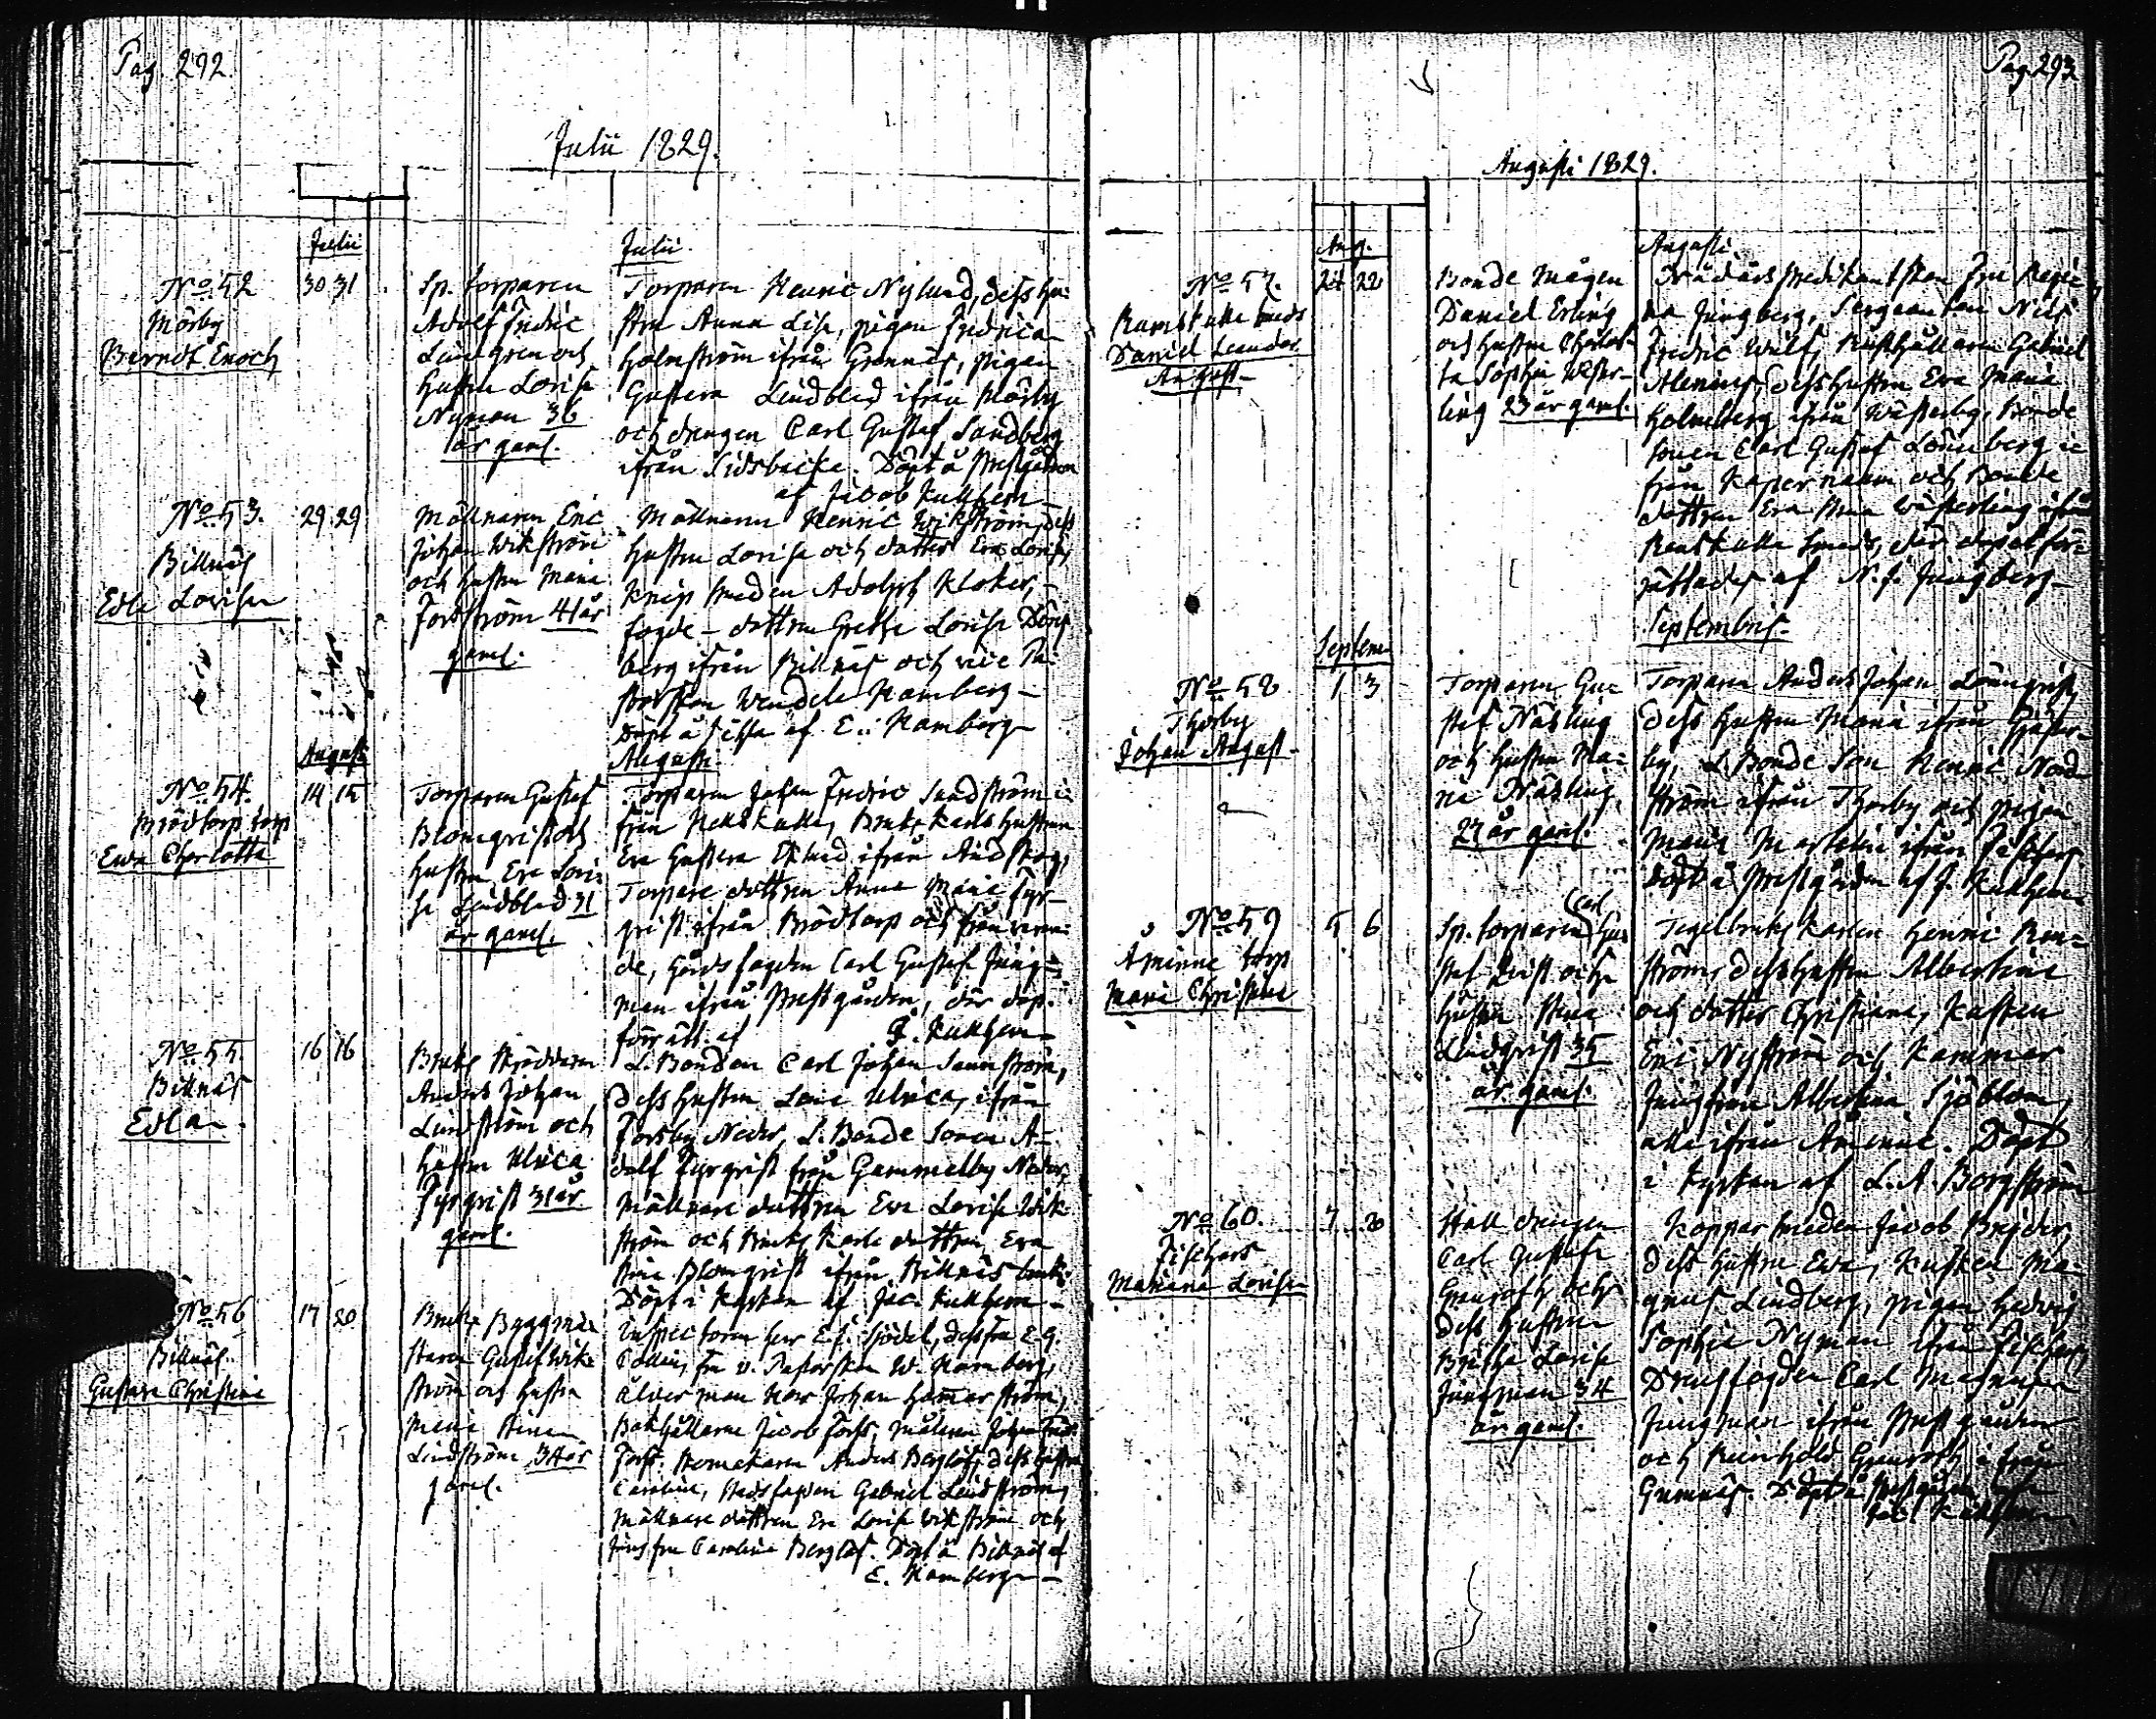 Pag. 292
Julii 1829.
Julii
Julii
No. 52
Mörby
Berndt Enoch
30 31
Sp. torparen
Adolf Fredric
Lindgren och
hustru Lovisa
Nyman 36
år gaml.
Torparen Henric Nylund, dess hu-
stru Anna Lisa, pigan Fredrica
Holmström ifrån Grennäs, pigan
Gustava Lindblad ifrån Mörby
och drengen Carl Gustaf Sandberg
ifrån Lidsbacka. Döpt å Prestgården
af Jacob Kullhem
No. 53.
Billnäs
Edla Lovisa
29 29
Möllnaren Eric
Johan Wikström
och hustru Maria
Forsström 41 år
gaml.
Möllnaren Henric Wikström, dess
hustru Lovisa och dotter Eva Lovisa,
Knipsmeden Adolph Kloker,
fogde-dottren Gretha Lovisa
berg ifrån Billnäs och vice Pa-
storskan Wendela Hamberg
Döpt å af E. Hamberg
Augusti
Augusti.
No. 54.
Brödtorp torp
Ewa Charlotta
14 15
Torparen Gustaf
Blomqvist och
hustru Eva Lovi-
sa Lindblad 31
år gaml.
Torparen Johan Fredric Sandström i-
från Rellskulla, Brukskarls hustrun
Eva Gustava Eklund ifrån
Torpare dottren Anna Maria Fyr-
qvist ifrån Brödtorp och
de, Gårdsfogden Carl Gustaf Jung-
man ifrån Prestgården, där döp.
förrätt. af J. Kullhem
No. 55.
Billnäs
Edla
16 16
Bruks skräddaren
Anders Johan
Lindström och
hustru Ulrica
Fyrqvist 31 år
gaml.
L. Bonden Carl Johan Sannström,
dess hustru Lovisa Ulrica, ifrån
Forsby Neder, L. Bonde sonen A-
dolf Fyrqvist från Gammelby Neder,
Möllnare dottren Eva Lovisa Wik-
ström och Bruks Karls dottren Eva
Stina Blomqvist ifrån Billnäs bruk.
Döpt i Kyrkan af Jac. Kullhem
No. 56
Billnäs.
Gustava Christina
17 20
Bruks Byggmä-
staren Gustaf Wik-
ström och hustru
Maria Stina
Lindström 34 år
gaml.
Inspectoren herr E. J. Sjödal, dess fru E. G.
Collin, fru v. Pastorskan W. Hamberg,
ålderman Herr Johan Hammarström,
Bokhållarne Jacob Forss, målaren Johan Fred.
Forss, Anders Berglöf, dess hustru
Carolina, Gabriel Lindström,
Möllnare dottren Eva Lovisa Wikström och
Jungfru Carolina Berglöf. Döpt å Billnäs af
E. Hamberg
Pag. 293
Augusti 1829.
Aug.
Augusti
No. 57.
Ramskulla
Daniel Leander
August
21 22
Bonde mågen
Daniel Erling
och hustru Charlot-
ta Sophia Wester-
ling 23 år gaml.
Nådårs Predikantskan Fru Regi-
na Ljungberg, Sergeanten Nils
Fredric Wulf, Rusthållaren Gabriel
Alenius, dess hustru Eva Maria
Holmberg ifrån Wästerby, Bonde
sonen Carl Gustaf Lönnberg i-
från Kapernaum och Bonde
dottren Eva Stina Wästerling ifrån
Ramskulla där döpet för-
rättades af N. J. Ljungberg
Septem
Septembris.
No. 58
Thorby
Johan August
1 3
Torparen Gu-
staf Näsling
och hustru Ma-
ria Näsling
27 år gaml.
Torparen Anders Johan Lönnqvist,
dess hustru Maria ifrån
by, L. Bonde Son Henric Nord-
ström ifrån Thorby och pigan
Maria Martelin ifrån Fiskars
Döpt å Prestgården af J. Kullhem
No. 59
Åminne torp
Maria Christina
5 6
Sp. torparen Carl Gu-
staf och
hustru Stina
Lindqvist 35
år gaml.
Tegelbruks Karlen Henric Ren-
ström, dess hustru Albertina
och dotter Christiana, Kusken
Eric Nyström och Kammar
Jungfrun Albertina Sjöblom,
alla ifrån Åminne. Döpt
i Kyrkan af L. A. Borgström
No. 60.
Fiskars
Mariana Lovisa
7 8
Stall drengen
Carl Gustaf
Grönroth och
dess hustru
Britha Lovisa
Jungman 34
år gaml.
Kopparsmeden Jacob Breider,
dess hustru Ewa, Kusken Ma-
gnus Lindberg, pigan Hedvig
Sophia Nyman ifrån Fiskars,
Drengfogden Carl Magnus
Jungman ifrån Prestgården
och Reinhold Grönroth ifrån
Gumnäs. Döpt å Prestgården af
Jac. Kullhem